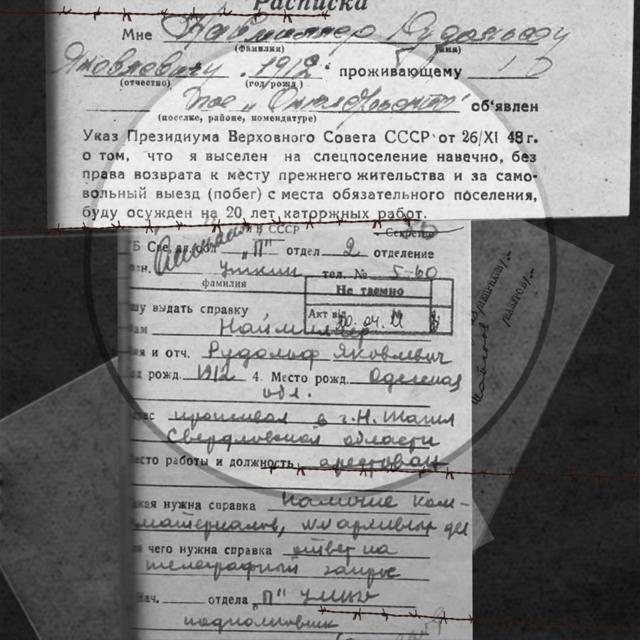 Расписка
Мне Наймиллер Рудольфу
(фамилия) (имя)
Яковлевичу 1912 проживающему
(отчество) (год рожд.)
пос. объявлен
(поселке, районе, комендатуре)
Указ Президиума Верховного Совета СССР от 26/XI 48 г.
о том, что я выселен на спецпоселение навечно, без
права возврата к месту прежнего жительства и за само-
вольный выезд (побег) с места обязательного поселения,
буду осужден на 20 лет каторжных работ.
СССР
Секретно
"П" отдел 2 отделение
Уткин тел. № 5-60
фамилия
Не таємно
шу выдать справку
Акт від 20.04.
Наймиллер
и отч. Рудольф Яковлевич
рожд. 1912 4. Место рожд. Одесская
обл.
проживал в г. Н. Тагил
Свердловской области
есто работы и должность арестован
акая нужна справка наличие ком-
материалов, №№ архивных дел
я чего нужна справка ответ на
телеграфный запрос
Нач. отдела "П"
подполковник